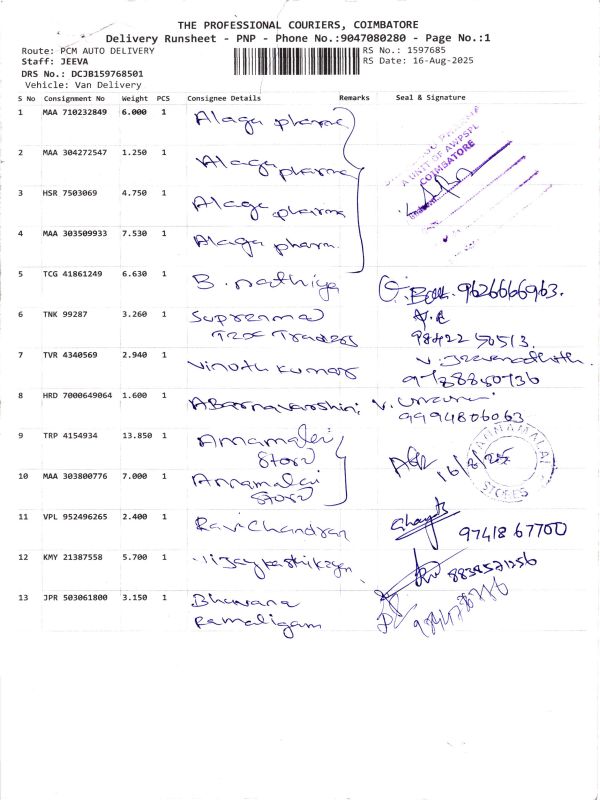 THE PROFESSIONAL COURIERS, COIMBATORE
Delivery Runsheet - PNP - Phone No.:9047080280 - Page No.:1
Route: PCM AUTO DELIVERY
RS No.: 1597685
Staff: JEEVA
RS Date: 16-Aug-2025
DRS No.: DCJB159768501
Vehicle: Van Delivery
S No Consignment No Weight PCS Consignee Details Remarks Seal & Signature
1 MAA 710232849 6.000 1 Alaga pharma
A UNIT OF AWPSPL
COIMBATORE
2 MAA 304272547 1.250 1 Alaga pharma
3 HSR 7503069 4.750 1 Alaga pharma
4 MAA 303509933 7.530 1 Alaga pharm.
5 TCG 41861249 6.630 1 B. nathiya 9626666963.
6 TNK 99287 3.260 1 Supremad
Traders 98422 50513.
7 TVR 4340569 2.940 1 Vinoth kumar
8 HRD 7000649064 1.600 1 ABarnavarshini
9994806063
9 TRP 4154934 13.850 1 Annamalai
Store 16/8/25
ANNAMALAI STORES
10 MAA 303800776 7.000 1 Annamalai
Store
11 VPL 952496265 2.400 1 Ravi Chandran 97418 67700
12 KMY 21387558 5.700 1 Vijay karthikeyan
13 JPR 503061800 3.150 1 Bhuvana
Ramaligam